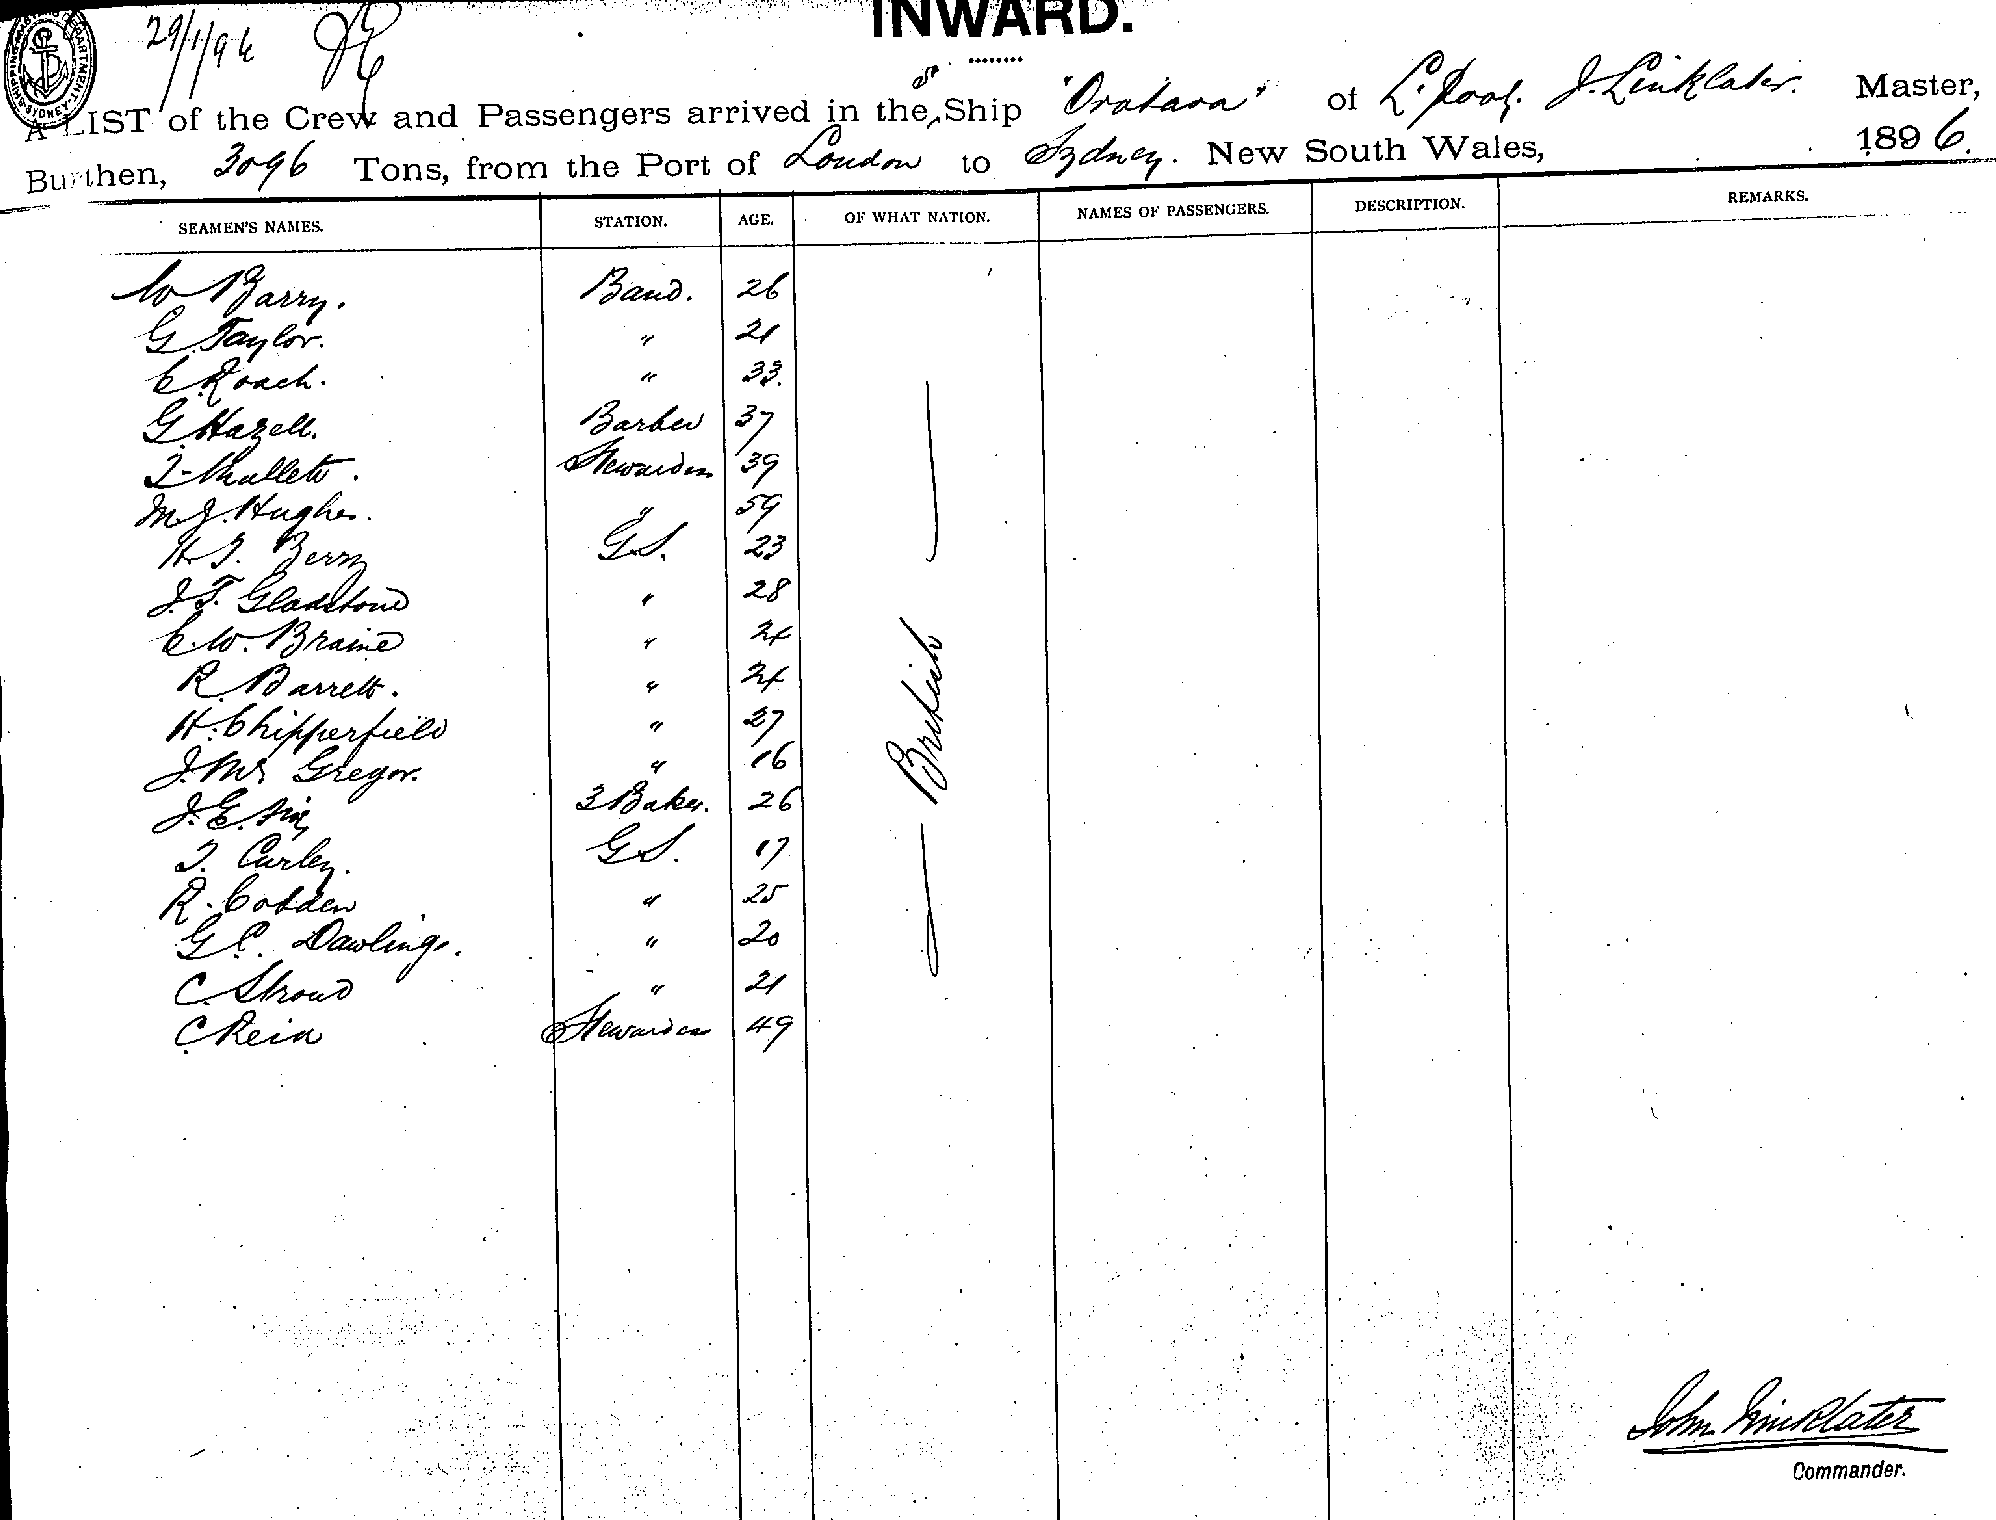 29/1/96
INWARD.
A LIST of the Crew and Passengers arrived in the SS Ship "Orotava" of L'pool. J. Linklater. Master,
Burthen, 3096 Tons, from the Port of London to Sydney. New South Wales, 1896.
SEAMEN'S NAMES. STATION. AGE. OF WHAT NATION. NAMES OF PASSENGERS. DESCRIPTION. REMARKS.
W Barry. Band. 26
G Taylor. " 21
C Roach. " 33.
G Hazell. Barber 37
Mullett. Stewardess 39
M.J. Hughes. " 59
H. J. Berry G.S. 23
J. F. Gladstone " 28
E. W. Braine " 24
R Barrett. " 24
H. Chipperfield " 27
J. Mc Gregor. " 16
J. E. 3 Baker. 26
T. Curley. G S. 17
R. Cobden " 25
G C. Dawlings. " 20
C. Stroud " 21
C. Reid Stewardess 49
British
John Linklater
Commander.